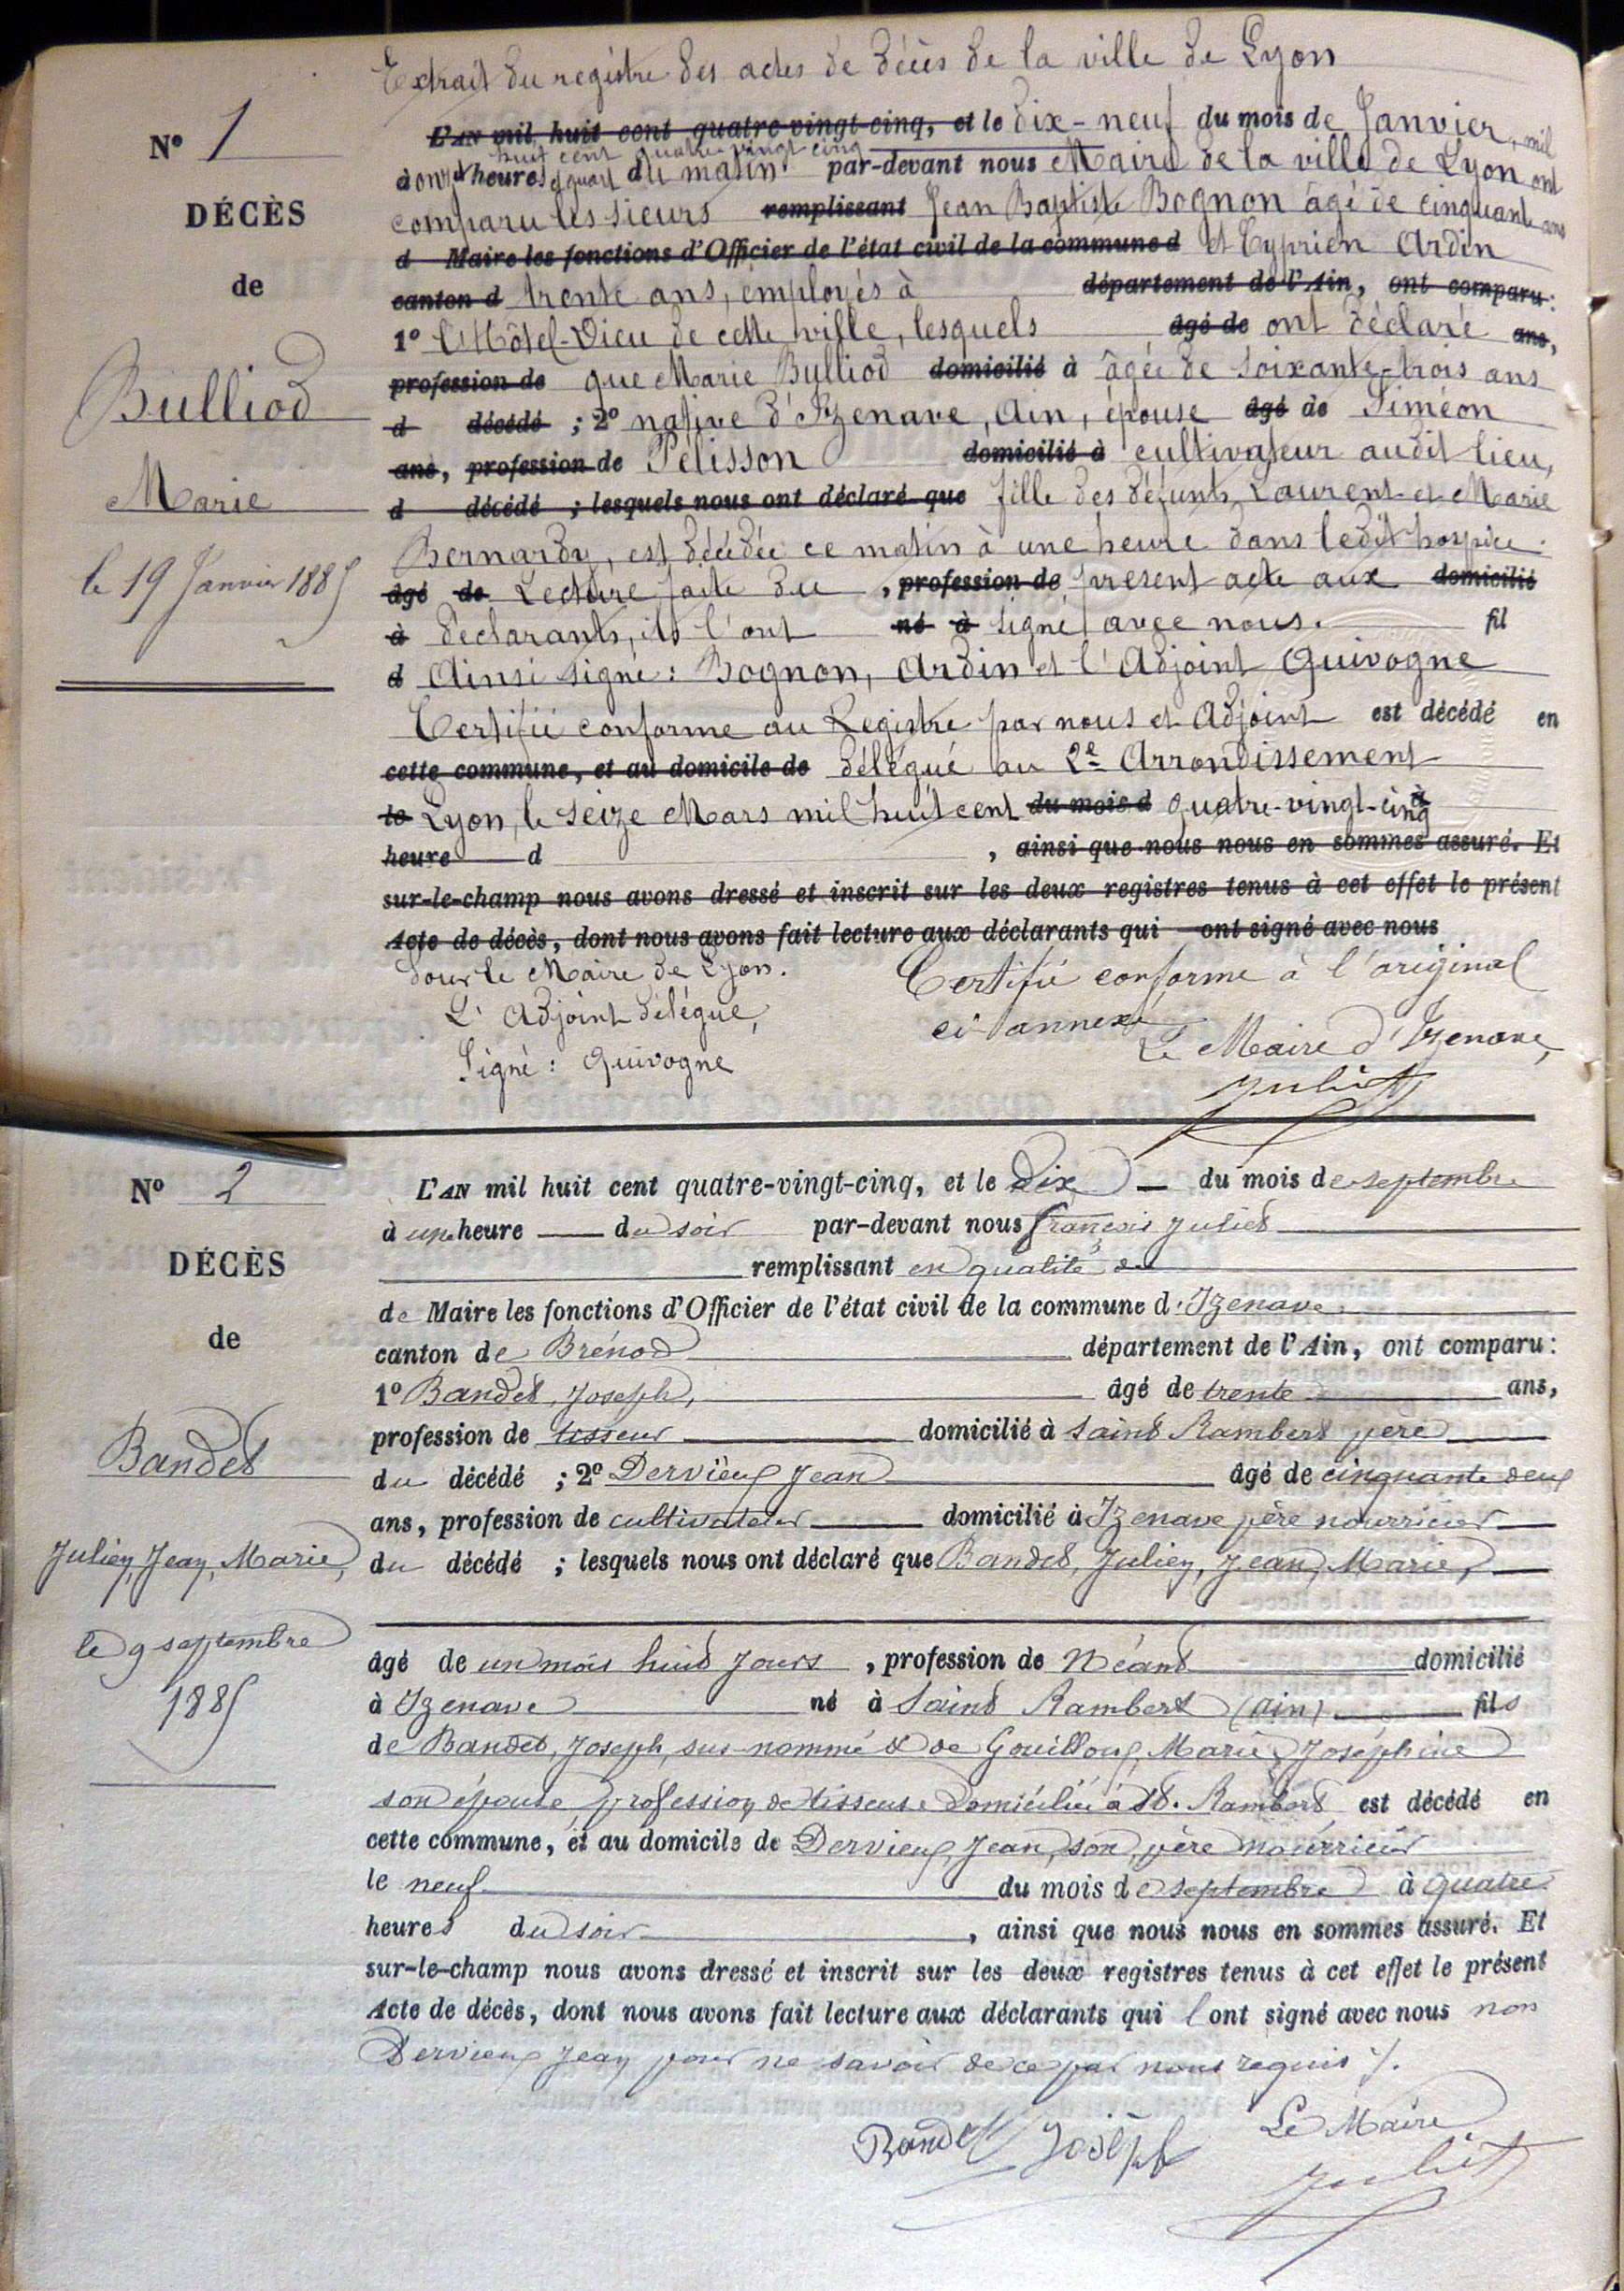 Extrait du registre des actes de décès de la ville de Lyon
Nº 1
DÉCÈS
de
Bulliod
Marie
le 19 Janvier 1885
L'AN mil huit cent quatre-vingt-cinq, et le dix-neuf du mois de Janvier, mil
huit cent quatre-vingt cinq
à onze heures et quart du matin. par-devant nous Maire de la ville de Lyon ont
comparu les sieurs remplissant Jean Baptiste Bognon âgé de cinquante ans
d Maire les fonctions d'Officier de l'état civil de la commune d et Cyprien Ardin
canton d trente ans, employés à département de l'Ain, ont comparu:
1º l'Hôtel-Dieu de cette ville, lesquels âgé de ont déclaré ans,
profession de que Marie Bulliod domicilié à âgée de soixante-trois ans
d décédé ; 2º native d'Izenave, Ain, épouse âgé de Siméon
ans, profession de Pélisson domicilié à cultivateur audit lieu,
d décédé ; lesquels nous ont déclaré que fille des défunts Laurent et Marie
Bernardy, est décédée ce matin à une heure dans ledit hospice.
âgé de Lecture faite du , profession de présent acte aux domicilié
à déclarants, ils l'ont né à signé avec nous. fil
d Ainsi signé: Bognon, Ardin et l'Adjoint Quivogne
Certifié conforme au Registre par nous et Adjoint est décédé en
cette commune, et au domicile de délégué au 2e Arrondissement
le Lyon, le seize Mars mil huit cent du mois d quatre-vingt-cinq à
heure d , ainsi que nous nous en sommes assuré. Et
sur-le-champ nous avons dressé et inscrit sur les deux registres tenus à cet effet le présent
Acte de décès, dont nous avons fait lecture aux déclarants qui ont signé avec nous
Pour le Maire de Lyon.
L'Adjoint délégué,
Signé: Quivogne
Certifié conforme à l'original
ci annexé
Le Maire d'Izenave,
Juliet
Nº 2
DÉCÈS
de
Bandet
Julien, Jean, Marie,
le 9 septembre
1885
L'AN mil huit cent quatre-vingt-cinq, et le Dix du mois de septembre
à une heure du soir par-devant nous françois Juliet
remplissant en qualité de
de Maire les fonctions d'Officier de l'état civil de la commune d'Izenave
canton de Brénod département de l'Ain, ont comparu:
1º Bandet, Joseph, âgé de trente ans,
profession de tisseur domicilié à Saint Rambert père
du décédé ; 2º Dervieux Jean âgé de cinquante deux
ans, profession de cultivateur domicilié à Izenave père nourricier
du décédé ; lesquels nous ont déclaré que Bandet, Julien, Jean, Marie,
âgé de un mois huit jours , profession de Néant domicilié
à Izenave né à Saint Rambert (ain) fils
de Bandet, Joseph, sus-nommé & de Gouilloux, Marie, Joséphine
son épouse, profession de tisseuse domiciliée à St. Rambert est décédé en
cette commune, et au domicile de Dervieux, Jean, son père nourricier
le neuf du mois de septembre à quatre
heures du soir , ainsi que nous nous en sommes assuré. Et
sur-le-champ nous avons dressé et inscrit sur les deux registres tenus à cet effet le présent
Acte de décès, dont nous avons fait lecture aux déclarants qui l'ont signé avec nous non
Dervieux Jean pour ne savoir de ce par nous requis ./.
Bandet Joseph
Le Maire
Juliet